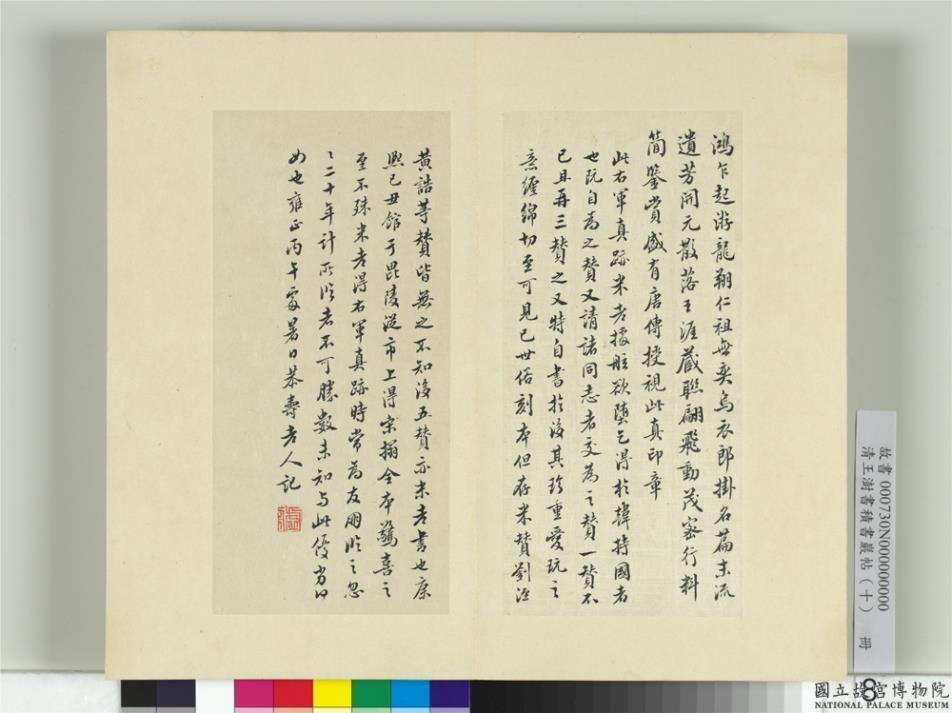 鴻乍起游龍翔仁祖無奕烏衣郎掛名篇末流
遺芳開元散落王涯藏聯翩飛動茂密行料
簡鑒賞盛有唐傳授視此真印章
此右軍真跡米老據舷欲墮乞得於攄持國者
也既自為之贊又請諸同志者交為之贊一贊不
已且再三贊之又特自書於後其珍重愛玩之
意纏綿切至可見已世俗刻本但存米贊劉涇
黃誥等贊皆無之不知後五贊亦米老書也康
熙己丑館于毘陵從市上得宋搨全本驚喜之
至不殊米老得右軍真跡時常為友朋臨之忽
二十年計所臨者不可勝數未知與此優劣何
如也雍正丙午處暑日恭壽老人記
故書 000730N000000000
清王澍書積書巖帖(十) 冊
8
國立故宮博物院
NATIONAL PALACE MUSEUM